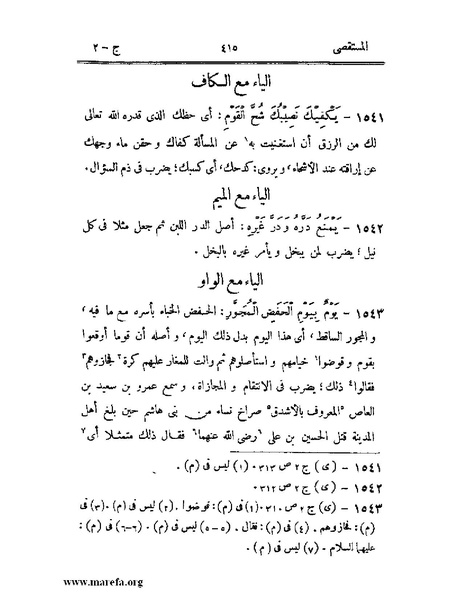 المستقصى ٤١٥ ج - ٢
الياء مع الكاف
١٥٤١ - يَكْفِيْكَ نَصِيْبُكَ شُحَّ الْقَوْمِ : أى حظك الذى قدره الله تعالى
لك من الرزق أن استغنيت به١ عن المسألة كفاك و حقن ماء وجهك
عن إراقته عند الأشحاء، و يروى: كدحك، أى كسبك؛ يضرب فى ذم السؤال.
الياء مع الميم
١٥٤٢ - يَمْنَعُ دَرَّهُ وَ دَرَّ غَيْرِهِ : أصل الدر اللبن ثم جعل مثلا فى كل
نيل؛ يضرب لمن يبخل و يأمر غيره بالبخل.
الياء مع الواو
١٥٤٣ - يَوْمٌ بِيَوْمِ الْحَفَضِ الْمُجَوَّرِ : الحفض الخباء بأسره مع ما فيه،
و المجور الساقط، أى هذا اليوم بدل ذلك اليوم، و أصله أن قوما أوقعوا
بقوم و قوضوا٢ خيامهم و استأصلوهم ثم رانت للمغار عليهم كرة٣ فجازوهم٣
فقالوا٤ ذلك؛ يضرب فى الانتقام و المجازاة، و سمع عمرو بن سعيد بن
العاص ٥المعروف بالأشدق٥ صراخ نساء من بنى هاشم حين بلغ أهل
المدينة قتل الحسين بن على ٦رضى الله عنهما٦ فقال ذلك متمثلا أى٧
١٥٤١ - (ى) ج ٢ ص ٣١٣ . (١) ليس فى (م) .
١٥٤٢ - (ى) ج ٢ ص ٣١٢ .
١٥٤٣ - (ى) ج ٢ ص ٣١٠ . (١) فى (م): فوضوا . (٢) ليس فى (م) . (٣) فى
(م): فجازوهم . (٤) فى (م): فقال . (٥-٥) ليس فى (م) . (٦-٦) فى (م):
عليهما السلام . (٧) ليس فى (م) .
www.marefa.org